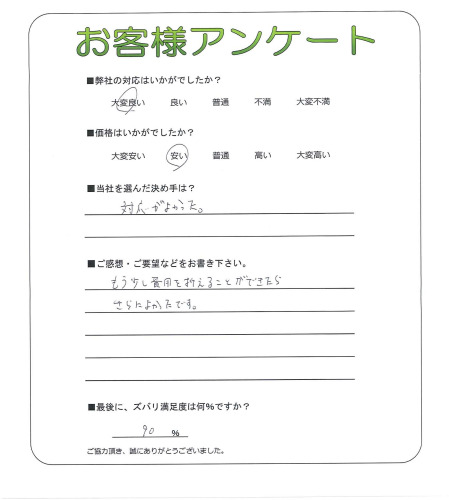 お客様アンケート
■弊社の対応はいかがでしたか？
大変良い 良い 普通 不満 大変不満
■価格はいかがでしたか？
大変安い 安い 普通 高い 大変高い
■当社を選んだ決め手は？
対応がよかった。
■ご感想・ご要望などをお書き下さい。
もう少し費用を抑えることができたら
さらによかったです。
■最後に、ズバリ満足度は何%ですか？
90 %
ご協力頂き、誠にありがとうございました。